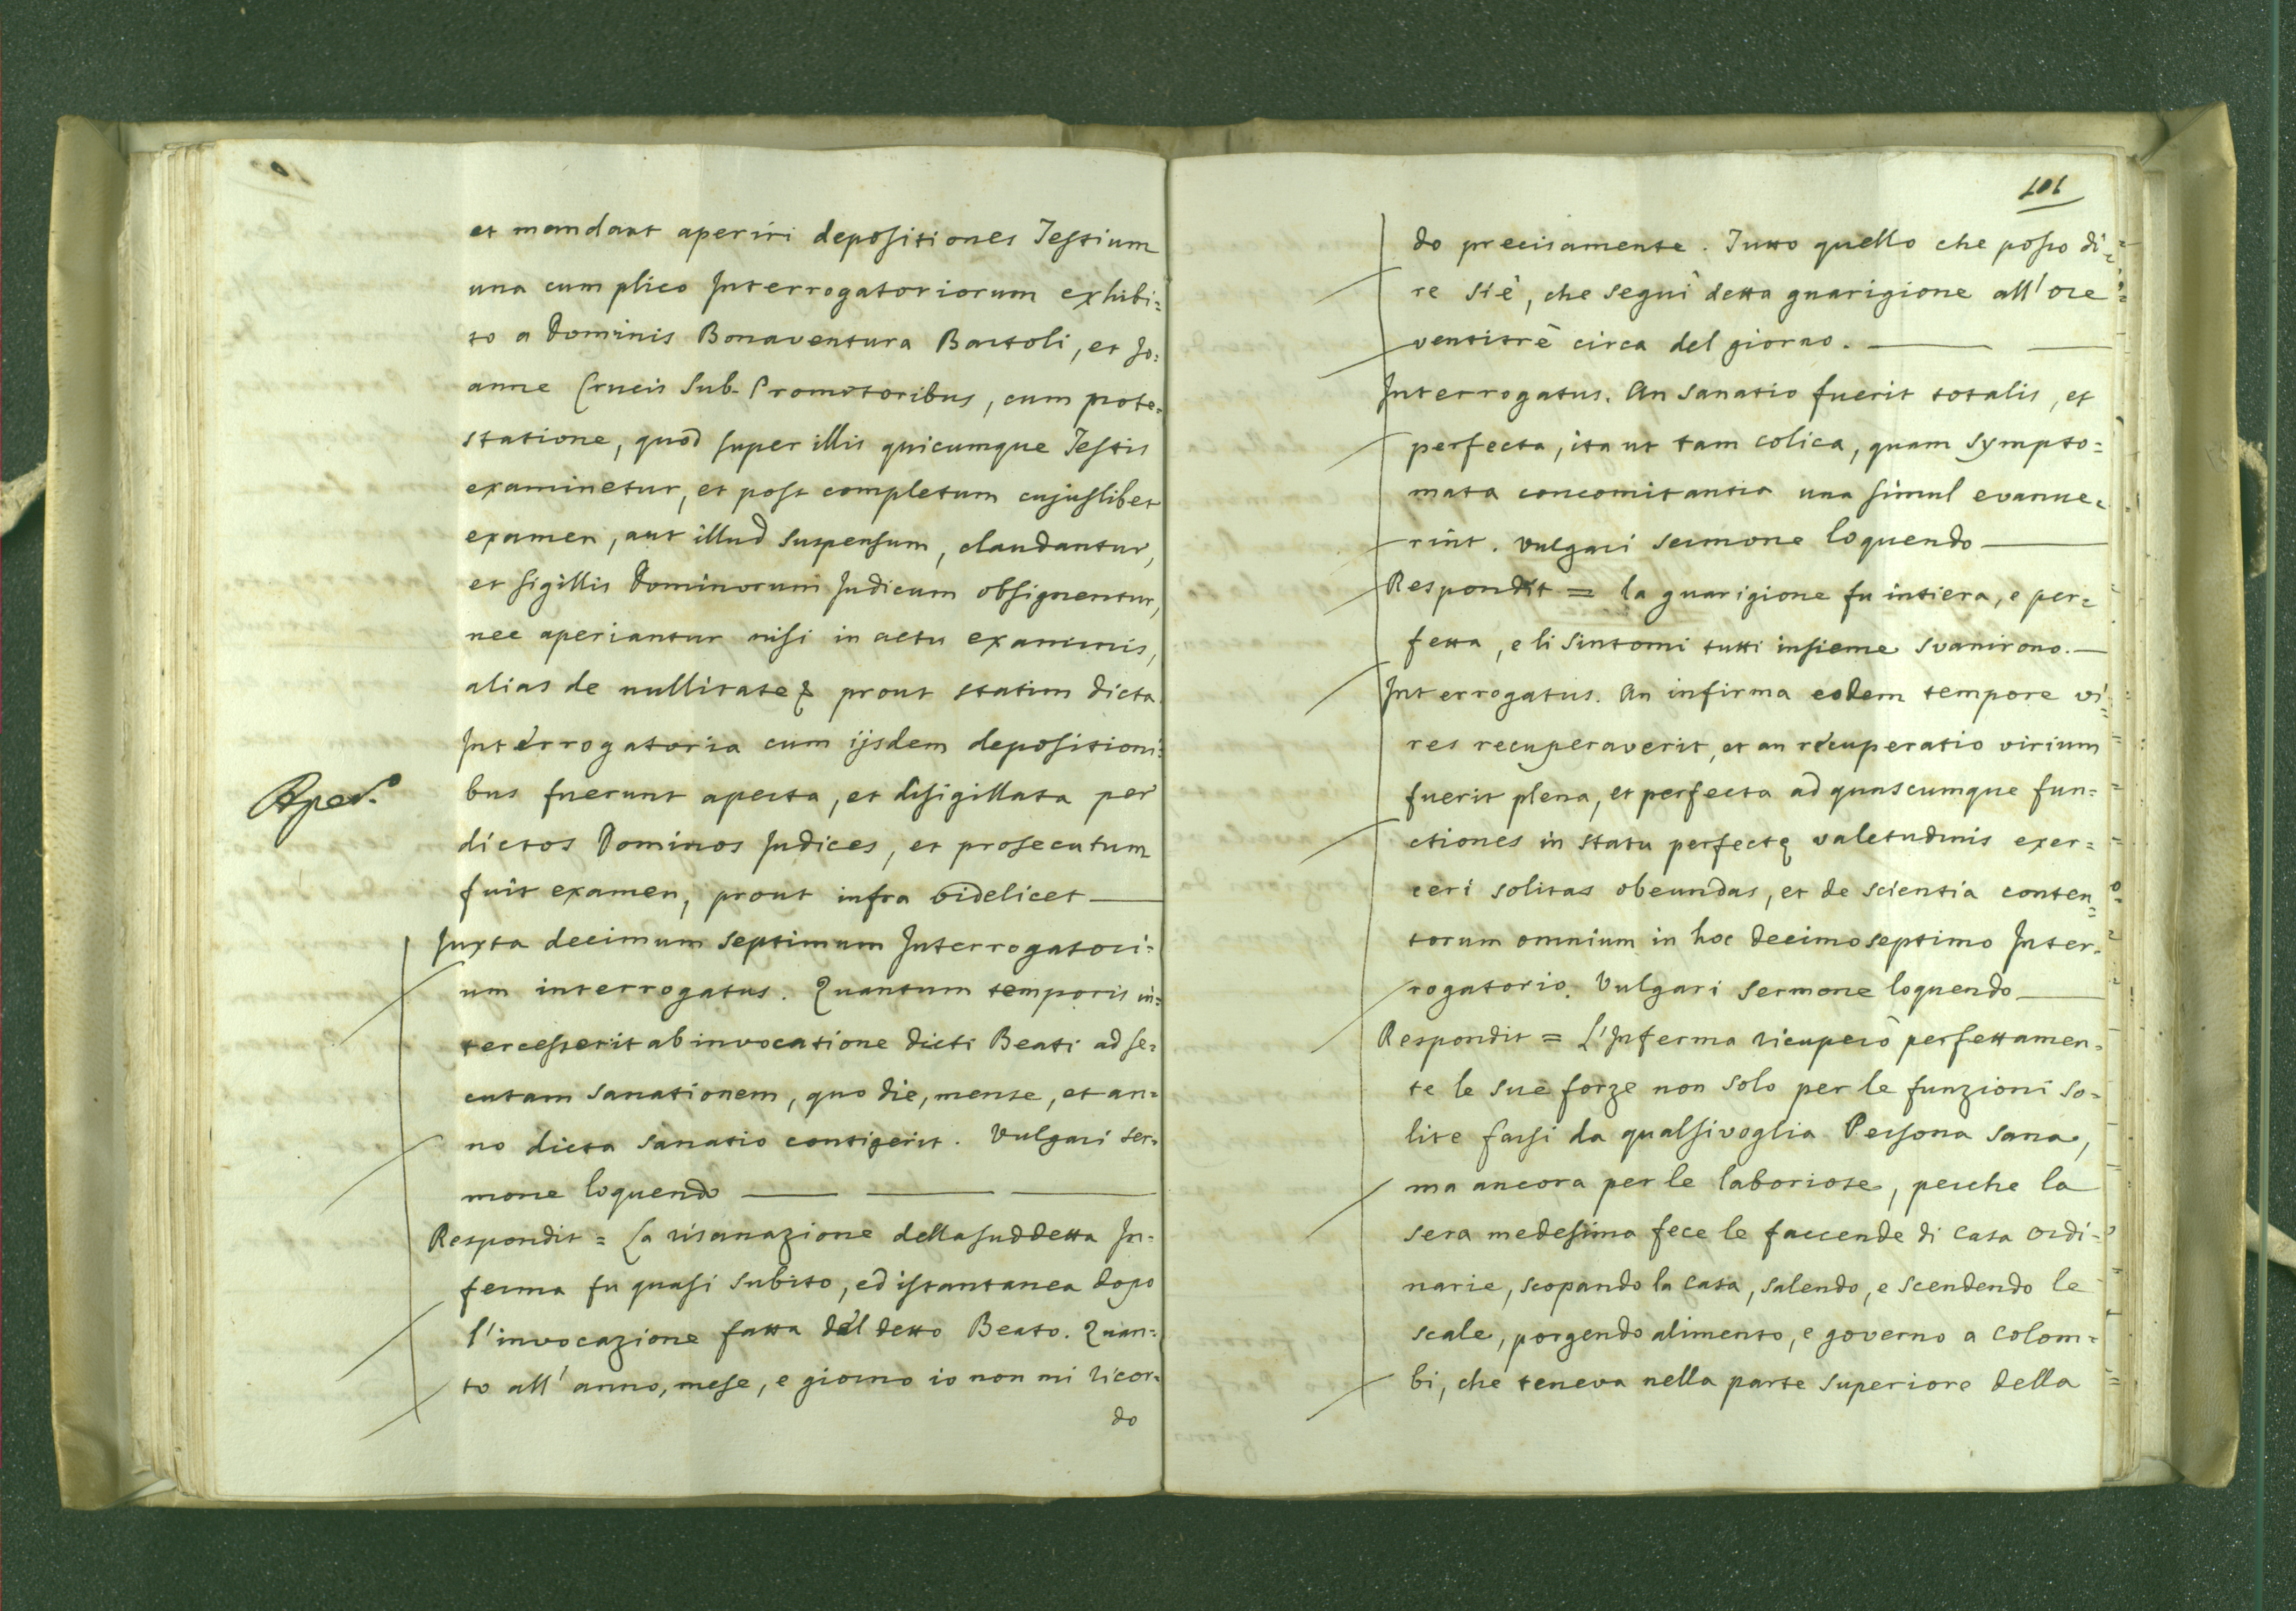 et mandant aperiri depositiones Testium
una cum plico Interrogatoriorum exhibi=
to a Dominis Bonaventura Bartoli, et Jo=
anne Crucis Sub-Promotoribus, cum prote=
statione, quod super illis quicumque Testis
examinetur, et post completum cujuslibet
examen, aut illud suspensum, claudantur,
et sigillis Dominorum Judicum obsignentur,
nec aperiantur nisi in actu examinis,
alias de nullitate & prout statim dicta
Interrogatoria cum ijsdem depositioni=
Aper.º
bus fuerunt aperta, et disigillata per
dictos Dominos Judices, et prosecutum
fuit examen, prout infra videlicet
Juxta decimum septimum Interrogatori=
um interrogatus. Quantum temporis in=
tercesserit ab invocatione dicti Beati ad se=
cutam sanationem, quo die, mense, et an=
no dicta sanatio contigerit. Vulgari ser=
mone loquendo
Respondit = La risanazione della suddetta In=
ferma fu quasi subito, ed istantanea dopo
l'invocazione fatta del detto Beato. Quan=
to all'anno, mese, e giorno io non mi ricor=
do
101
do precisamente. Tutto quello che posso di=
re si è, che seguì detta guarigione all'ore
ventitrè circa del giorno.
Interrogatus. An sanatio fuerit totalis, et
perfecta, ita ut tam colica, quam sympto=
mata concomitantia una simul evanue=
rint. Vulgari sermone loquendo
Respondit = la guarigione fu intiera, e per=
fetta, e li sintomi tutti insieme svanirono.
Interrogatus. An infirma eodem tempore vi=
res recuperaverit, et an recuperatio virium
fuerit plena, et perfecta ad quascumque fun=
ctiones in statu perfectę valetudinis exer=
ceri solitas obeundas, et de scientia conten=
torum omnium in hoc decimoseptimo Inter=
rogatorio. Vulgari sermone loquendo
Respondit = L'Inferma ricuperò perfettamen=
te le sue forze non solo per le funzioni so=
lite farsi da qualsivoglia Persona sana,
ma ancora per le laboriose, perche la
sera medesima fece le faccende di casa ordi=
narie, scopando la casa, salendo, e scendendo le
scale, porgendo alimento, e governo a colom=
bi, che teneva nella parte superiore della